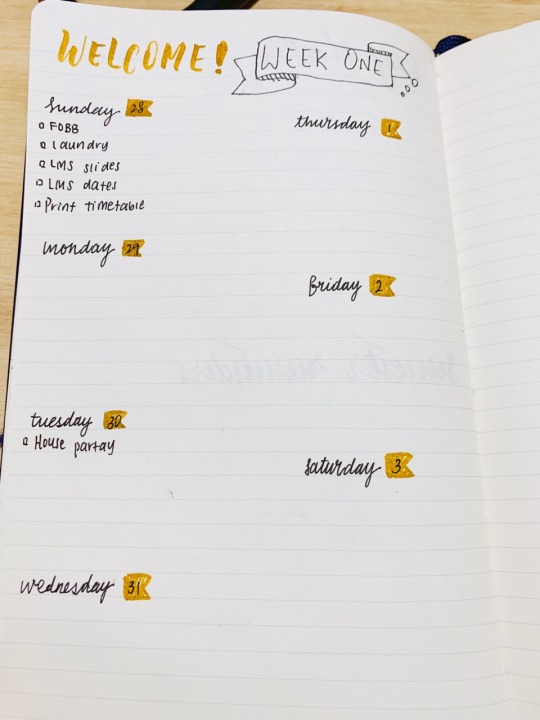 WELCOME!
WEEK ONE
Sunday 28
FOBB
Laundry
LMS slides
LMS dates
Print timetable
monday 29
tuesday 30
House partay
wednesday 31
thursday 1
friday 2
saturday 3